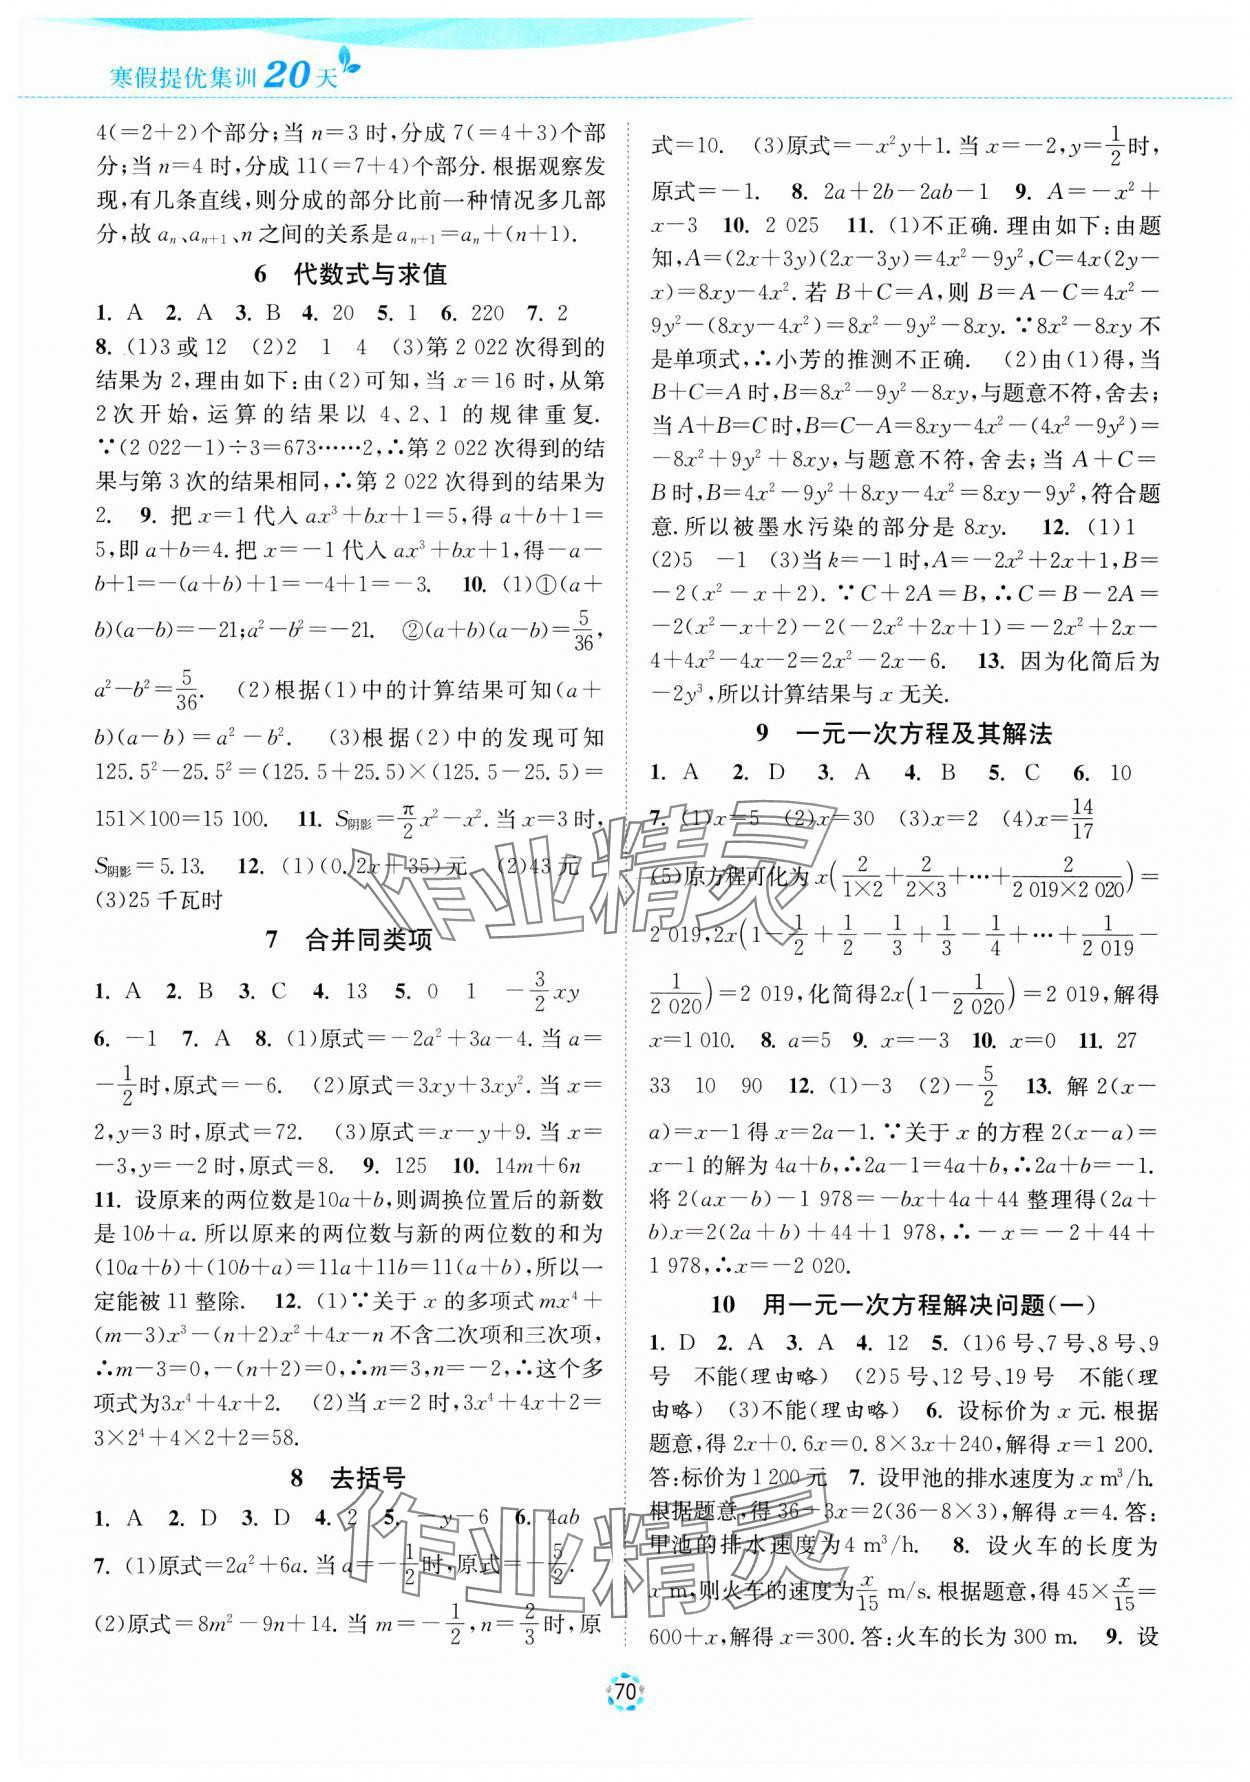 寒假提优集训20天
4(=2+2)个部分;当 n=3 时,分成 7(=4+3)个部
分;当 n=4 时,分成 11(=7+4)个部分.根据观察发
现,有几条直线,则分成的部分比前一种情况多几部
分,故 aₙ、aₙ₊₁、n 之间的关系是 aₙ₊₁=aₙ+(n+1).
6 代数式与求值
1. A 2. A 3. B 4. 20 5. 1 6. 220 7. 2
8. (1)3或 12 (2)2 1 4 (3)第 2 022 次得到的
结果为 2,理由如下:由(2)可知,当 x=16 时,从第
2 次开始,运算的结果以 4、2、1 的规律重复.
∵(2 022-1)÷3=673……2,∴第 2 022 次得到的结
果与第 3 次的结果相同,∴第 2 022 次得到的结果为
2. 9. 把 x=1代入 ax³+bx+1=5,得 a+b+1=
5,即 a+b=4.把 x=-1 代入 ax³+bx+1,得-a-
b+1=-(a+b)+1=-4+1=-3. 10. (1)①(a+
b)(a-b)=-21;a²-b²=-21. ②(a+b)(a-b)=5/36,
a²-b²=5/36. (2)根据(1)中的计算结果可知(a+
b)(a-b)=a²-b². (3)根据(2)中的发现可知
125.5²-25.5²=(125.5+25.5)×(125.5-25.5)=
151×100=15 100. 11. S阴影=π/2 x²-x².当 x=3 时,
S阴影=5.13. 12. (1)(0.2x+35)元 (2)43 元
(3)25 千瓦时
7 合并同类项
1. A 2. B 3. C 4. 13 5. 0 1 -3/2 xy
6. -1 7. A 8. (1)原式=-2a²+3a-4.当 a=
-1/2时,原式=-6. (2)原式=3xy+3xy².当 x=
2,y=3 时,原式=72. (3)原式=x-y+9.当 x=
-3,y=-2 时,原式=8. 9. 125 10. 14m+6n
11. 设原来的两位数是10a+b,则调换位置后的新数
是 10b+a.所以原来的两位数与新的两位数的和为
(10a+b)+(10b+a)=11a+11b=11(a+b),所以一
定能被 11 整除. 12. (1)∵关于 x 的多项式 mx⁴+
(m-3)x³-(n+2)x²+4x-n 不含二次项和三次项,
∴m-3=0,-(n+2)=0,∴m=3,n=-2,∴这个多
项式为3x⁴+4x+2. (2)当 x=2 时,3x⁴+4x+2=
3×2⁴+4×2+2=58.
8 去括号
1. A 2. D 3. D 4. 2 5. -y-6 6. 4ab
7. (1)原式=2a²+6a.当 a=-1/2时,原式=-5/2.
(2)原式=8m²-9n+14.当 m=-1/2,n=2/3时,原
式=10. (3)原式=-x²y+1.当 x=-2,y=1/2时,
原式=-1. 8. 2a+2b-2ab-1 9. A=-x²+
x-3 10. 2 025 11. (1)不正确.理由如下:由题
知,A=(2x+3y)(2x-3y)=4x²-9y²,C=4x(2y-
x)=8xy-4x².若 B+C=A,则 B=A-C=4x²-
9y²-(8xy-4x²)=8x²-9y²-8xy.∵8x²-8xy 不
是单项式,∴小芳的推测不正确. (2)由(1)得,当
B+C=A 时,B=8x²-9y²-8xy,与题意不符,舍去;
当 A+B=C时,B=C-A=8xy-4x²-(4x²-9y²)=
-8x²+9y²+8xy,与题意不符,舍去;当 A+C=
B 时,B=4x²-9y²+8xy-4x²=8xy-9y²,符合题
意.所以被墨水污染的部分是 8xy. 12. (1)1
(2)5 -1 (3)当 k=-1 时,A=-2x²+2x+1,B=
-2(x²-x+2).∵C+2A=B,∴C=B-2A=
-2(x²-x+2)-2(-2x²+2x+1)=-2x²+2x-
4+4x²-4x-2=2x²-2x-6. 13. 因为化简后为
-2y³,所以计算结果与 x 无关.
9 一元一次方程及其解法
1. A 2. D 3. A 4. B 5. C 6. 10
7. (1)x=5 (2)x=30 (3)x=2 (4)x=14/17
(5)原方程可化为 x(2/1×2+2/2×3+…+2/2 019×2 020)=
2 019,2x(1-1/2+1/2-1/3+1/3-1/4+…+1/2 019-
1/2 020)=2 019,化简得2x(1-1/2 020)=2 019,解得
x=1 010. 8. a=5 9. x=-3 10. x=0 11. 27
33 10 90 12. (1)-3 (2)-5/2 13. 解 2(x-
a)=x-1 得 x=2a-1.∵关于 x 的方程 2(x-a)=
x-1 的解为 4a+b,∴2a-1=4a+b,∴2a+b=-1.
将 2(ax-b)-1 978=-bx+4a+44 整理得(2a+
b)x=2(2a+b)+44+1 978,∴-x=-2+44+
1 978,∴x=-2 020.
10 用一元一次方程解决问题(一)
1. D 2. A 3. A 4. 12 5. (1)6 号、7 号、8 号、9
号 不能(理由略) (2)5 号、12 号、19 号 不能(理
由略) (3)不能(理由略) 6. 设标价为 x 元.根据
题意,得 2x+0.6x=0.8×3x+240,解得 x=1 200.
答:标价为 1 200 元 7. 设甲池的排水速度为 x m³/h.
根据题意,得 36-3x=2(36-8×3),解得 x=4.答:
甲池的排水速度为 4 m³/h. 8. 设火车的长度为
x m,则火车的速度为x/15 m/s.根据题意,得 45×x/15=
600+x,解得 x=300.答:火车的长为 300 m. 9. 设
70
作业精灵
作业精灵